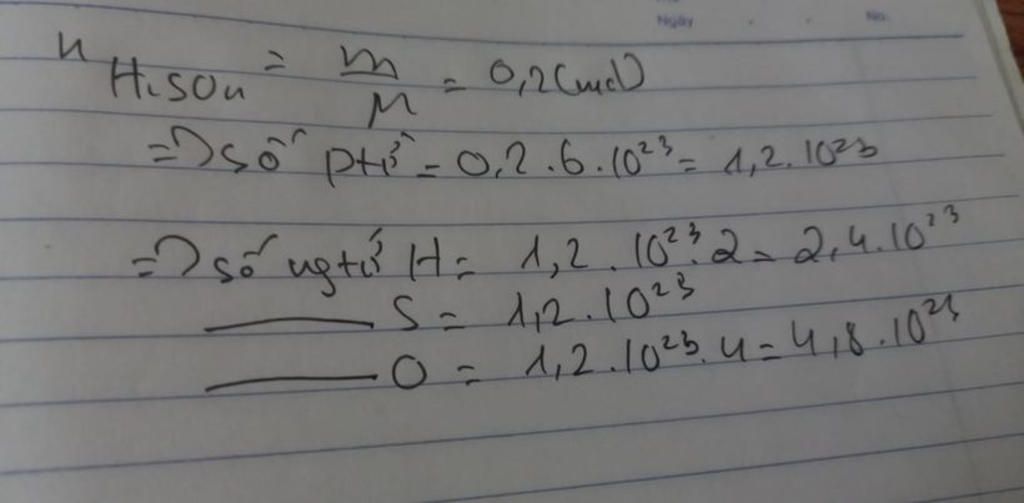 Ngày No.
n H₂SO₄ = m/M = 0,2 (mol)
=> số ptử = 0,2 . 6 . 10²³ = 1,2 . 10²³
=> số ngtử H = 1,2 . 10²³ . 2 = 2,4 . 10²³
——— S = 1,2 . 10²³
——— O = 1,2 . 10²³ . 4 = 4,8 . 10²³